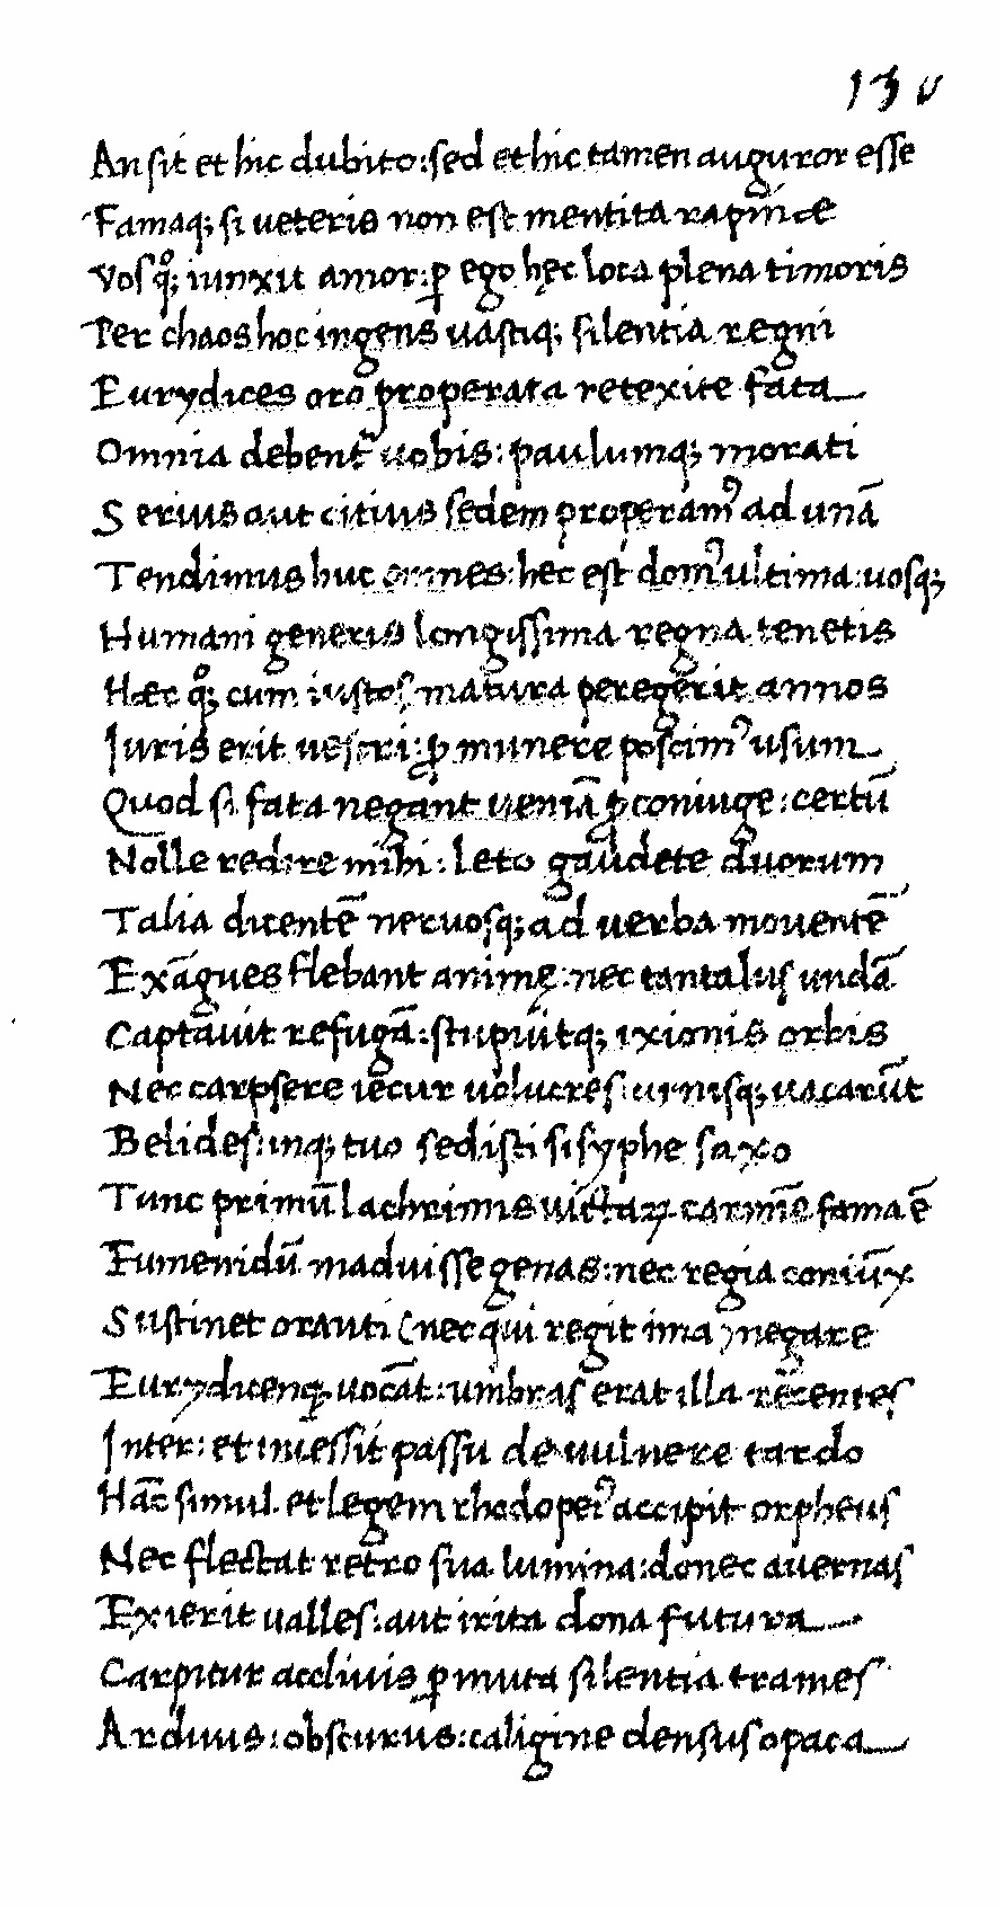 130
An sit et hic dubito: sed et hic tamen auguror esse
Famaq; si ueteris non est mentita rapinae
Vos qͦq; iunxit amor: ꝑ ego hęc loca plena timoris
Per chaos hoc ingens uastiq; silentia regni
Eurydices oro properata retexite fata
Omnia debent᷑ uobis: paulumq; morati
Serius aut citius sedem properamꝰ ad unā
Tendimus huc omnes: hec est domꝰ ultima: uosq;
Humani generis longissima regna tenetis
Haec qͦq; cum iustos matura peregerit annos
Iuris erit uestri: ꝓ munere poscimꝰ usum
Quod si fata negant ueniā ꝓ coniuge: certū
Nolle redire mihi: leto gaudete duorum
Talia dicentē neruosq; ad uerba mouentē
Exāgues flebant animę: nec tantalus undā
Captauit refugā: stupuitq; ixionis orbis
Nec carpsere iecur uolucres: urnisq; uacarūt
Belides: inq; tuo sedisti sisyphe saxo
Tunc primū lachrimis uictaꝝ carmīe fama ē
Eumenidū maduisse genas: nec regia coniūx
Sustinet orauti (nec qui regit ima) negare
Eurydicenq; uocāt: umbras erat illa recentes
Inter: et incessit passu de uulnere tardo
Hāc simul et legem rhodopeiꝰ accipit orpheus
Nec flectat retro sua lumina: donec auernas
Exierit ualles: aut irita dona futura
Carpitur accliuis ꝑ muta silentia trames
Arduus: obscurus: caligine densus opaca